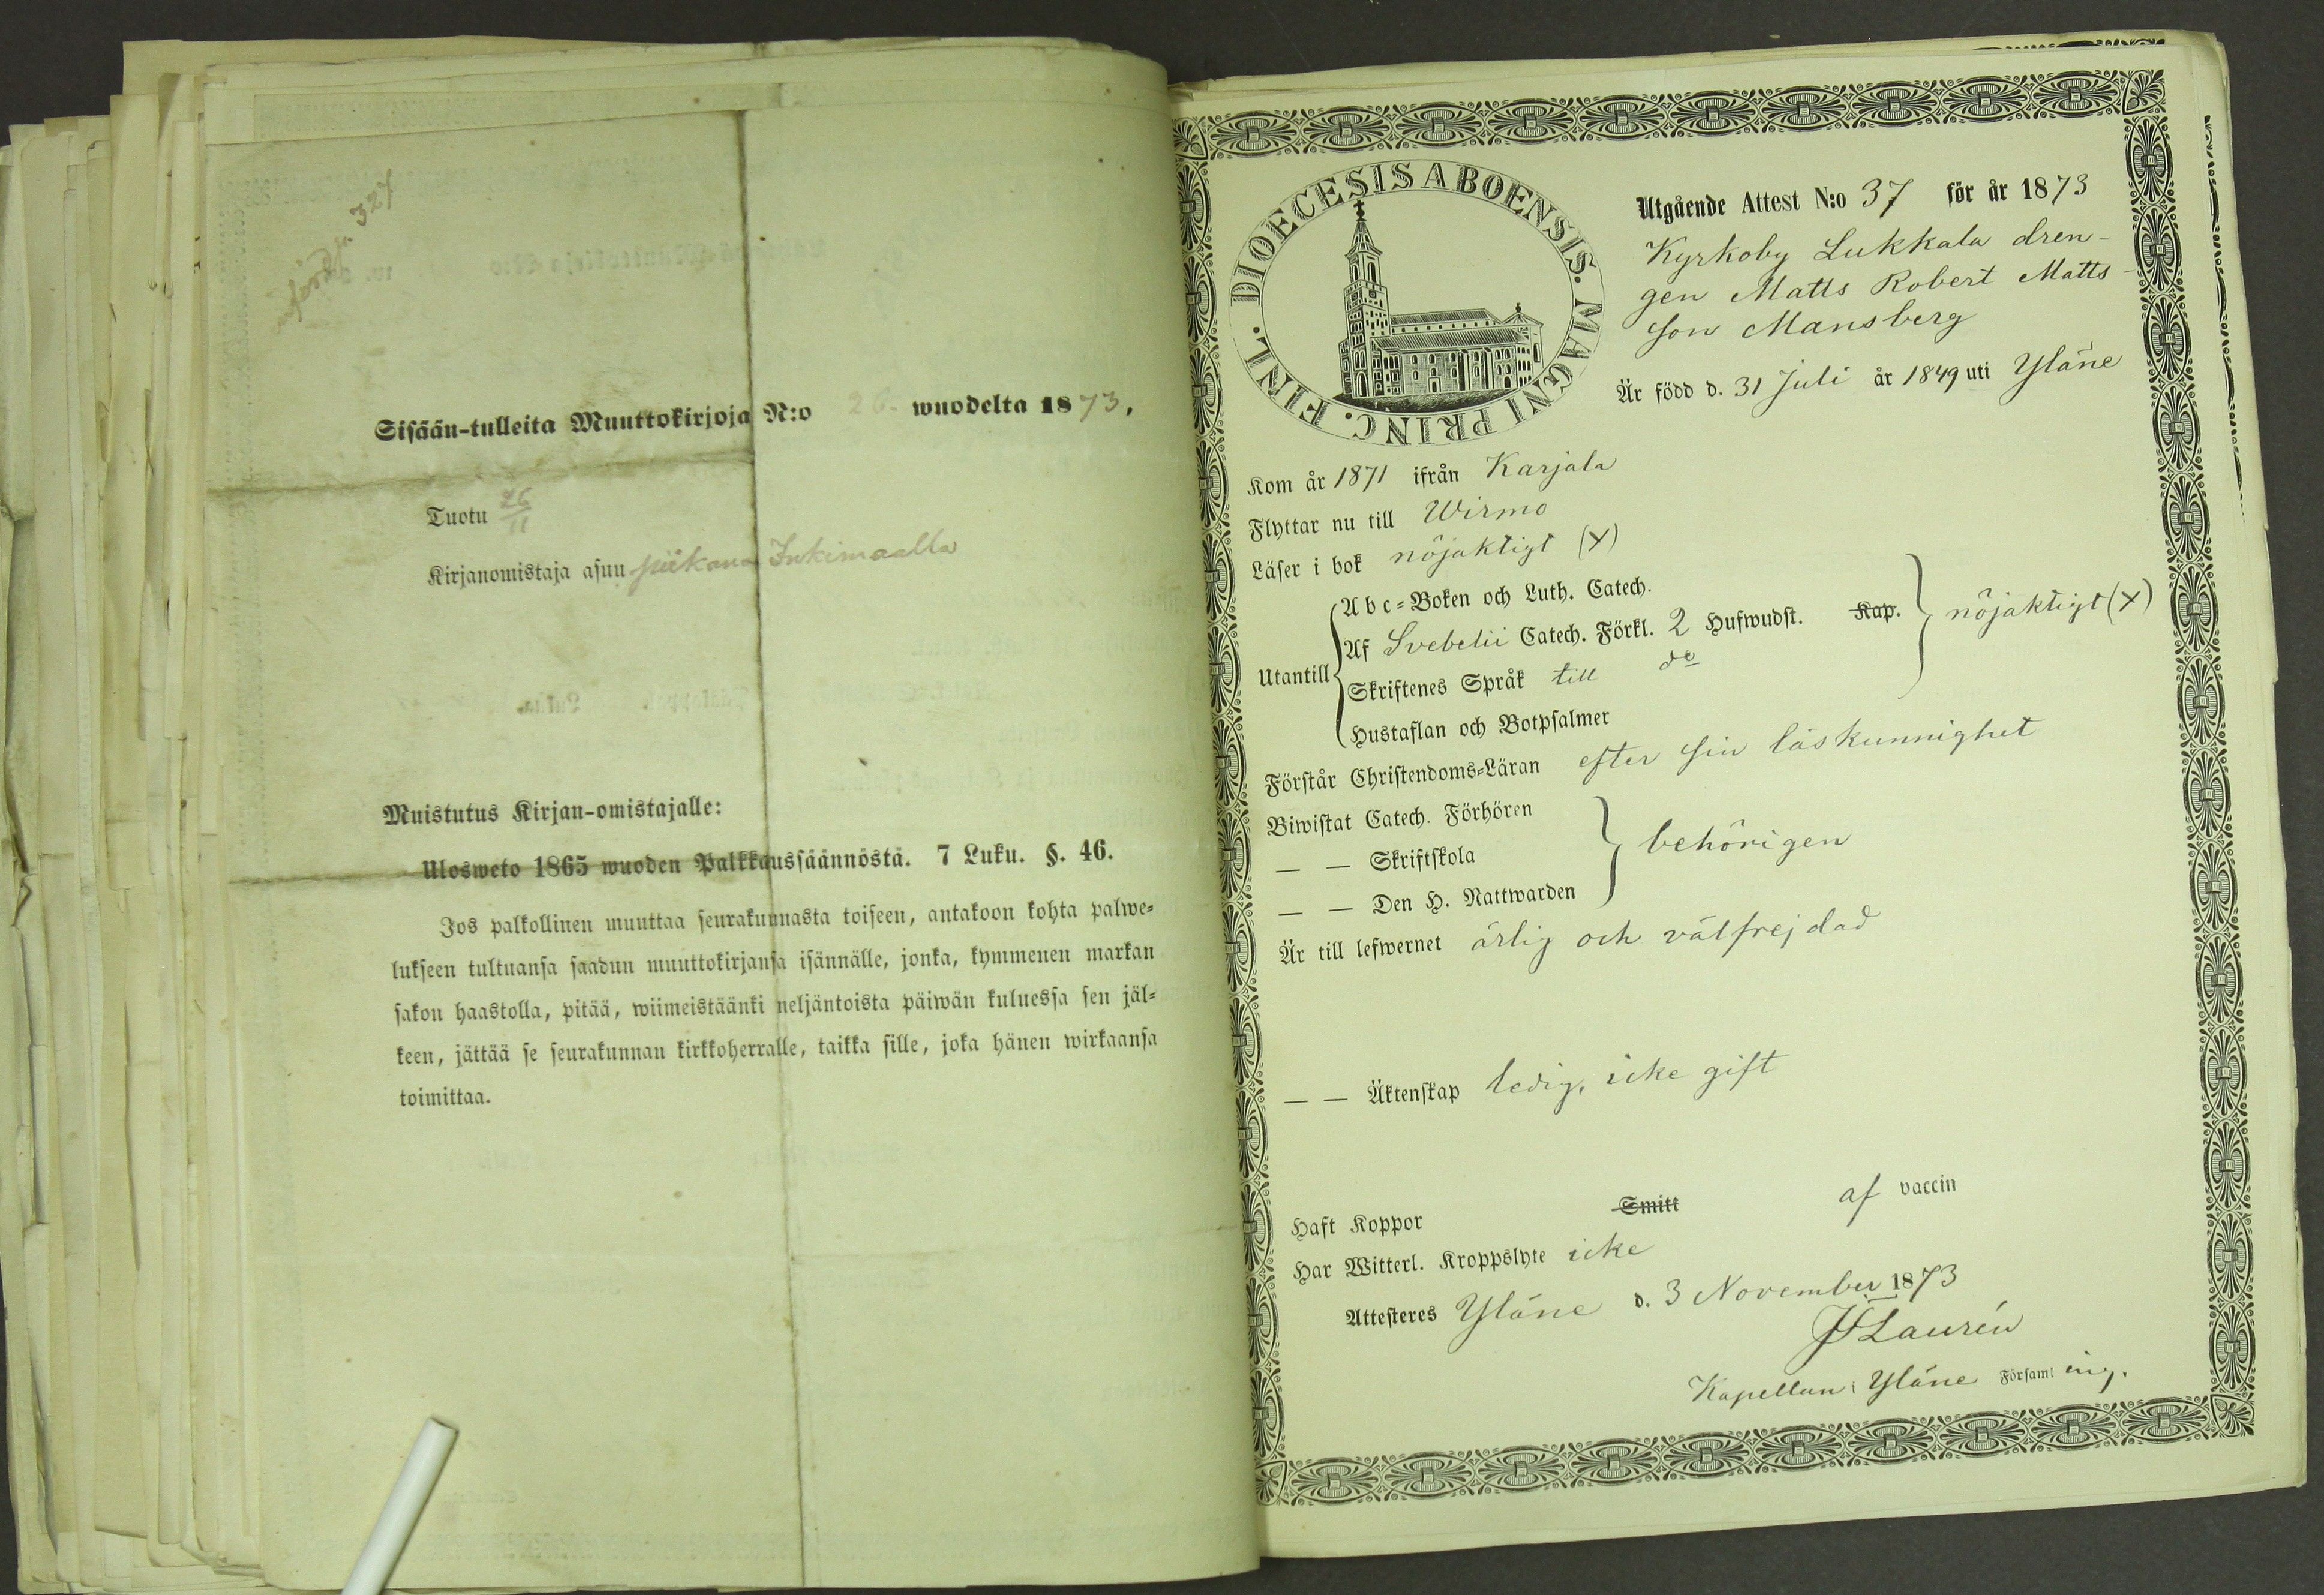 införd p. 327
Sisään-tulleita Muuttokirjoja N:o 26 wuodelta 1873.
Tuotu 26/11
Kirjanomistaja asuu piikana Inkimaalla
Muistutus Kirjan-omistajalle:
Ulosweto 1865 wuoden Palkkaussäännöstä. 7 Luku. §. 46.
Jos palkollinen muuttaa seurakunnasta toiseen, antakoon kohta palwe-
lukseen tultuansa saadun muuttokirjansa isännälle, jonka, kymmenen markan
sakon haastolla, pitää, wiimeistäänki neljäntoista päiwän kuluessa sen jäl-
keen, jättää se seurakunnan kirkkoherralle, taikka sille, joka hänen wirkaansa
toimittaa.
DIOECESIS ABOENSIS. MAGNI PRINC. FINL.
Utgående Attest N:o 37 för år 1873
Kyrkoby Lukkala dren-
gen Matts Robert Matts-
son Mansberg
Är född d. 31 Juli år 1849 uti Yläne
Kom år 1871 ifrån Karjala
Flyttar nu till Wirmo
Läser i bok nöjaktigt (Y)
Abc-Boken och Luth. Catech.
Utantill Af Svebelii Catech. Förkl. 2 Hufwudst. Kap. nöjaktigt (Y)
Skriftenes Språk till do
Hustaflan och Botpsalmer
Förstår Christendoms-Läran efter sin läskunnighet
Biwistat Catech. Förhören
— — Skriftskola behörigen
— — Den H. Nattwarden
Är till lefwernet ärlig och välfrejdad
— — Äktenskap ledig, icke gift
Haft Koppor Smitt af vaccin
Har Witterl. Kroppslyte icke
Attesteres Yläne d. 3 November 1873
Laurén
Kapellan i Yläne Församling.